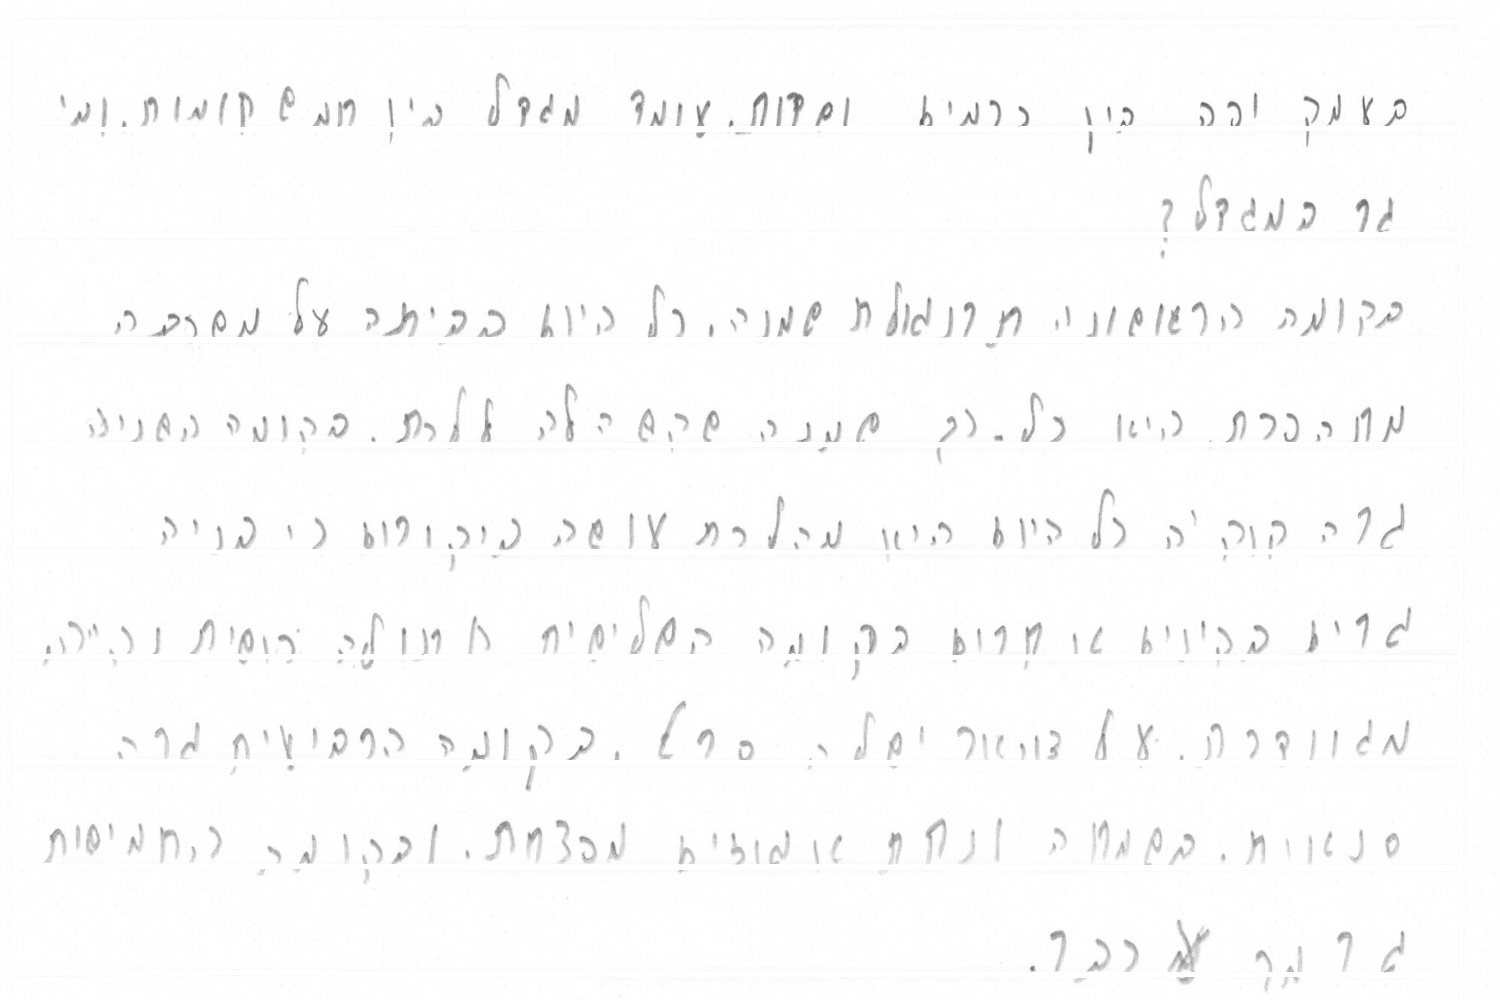 בעמק יהה בין כרמים ושדות. עומד מגדל בין חמש קומות. ומי
גר במגדל?
בקומה הראשונה תרנגולת שמנה. כל היום בביתה על משכבה
מתהפכת היא כל. כך שמנה שקשה לה ללכת. בקומה השנייה
גרה קוקיה כל היום היא מהלכת עושה ביקורים כי בניה
גרים בקינים אחרים בקומה השלישית חתולה כושית נקייה
מגוונדרת. על צוואר יש לה סרט. בקומה הרביעית גרה
סנאית. בשמחה ונחת אגוזים מפצחת. ובקומה החמישית
גר מר עכבר.